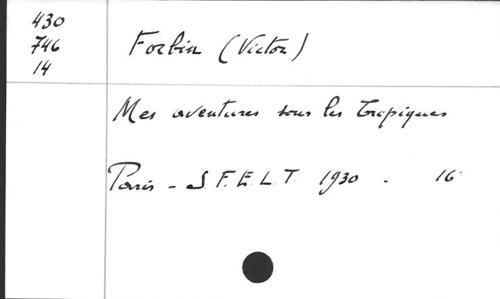 430
746
14
Forbin (Victor)
Mes aventures sous les Tropiques
Paris - S.F.E.L.T. 1930 - 16